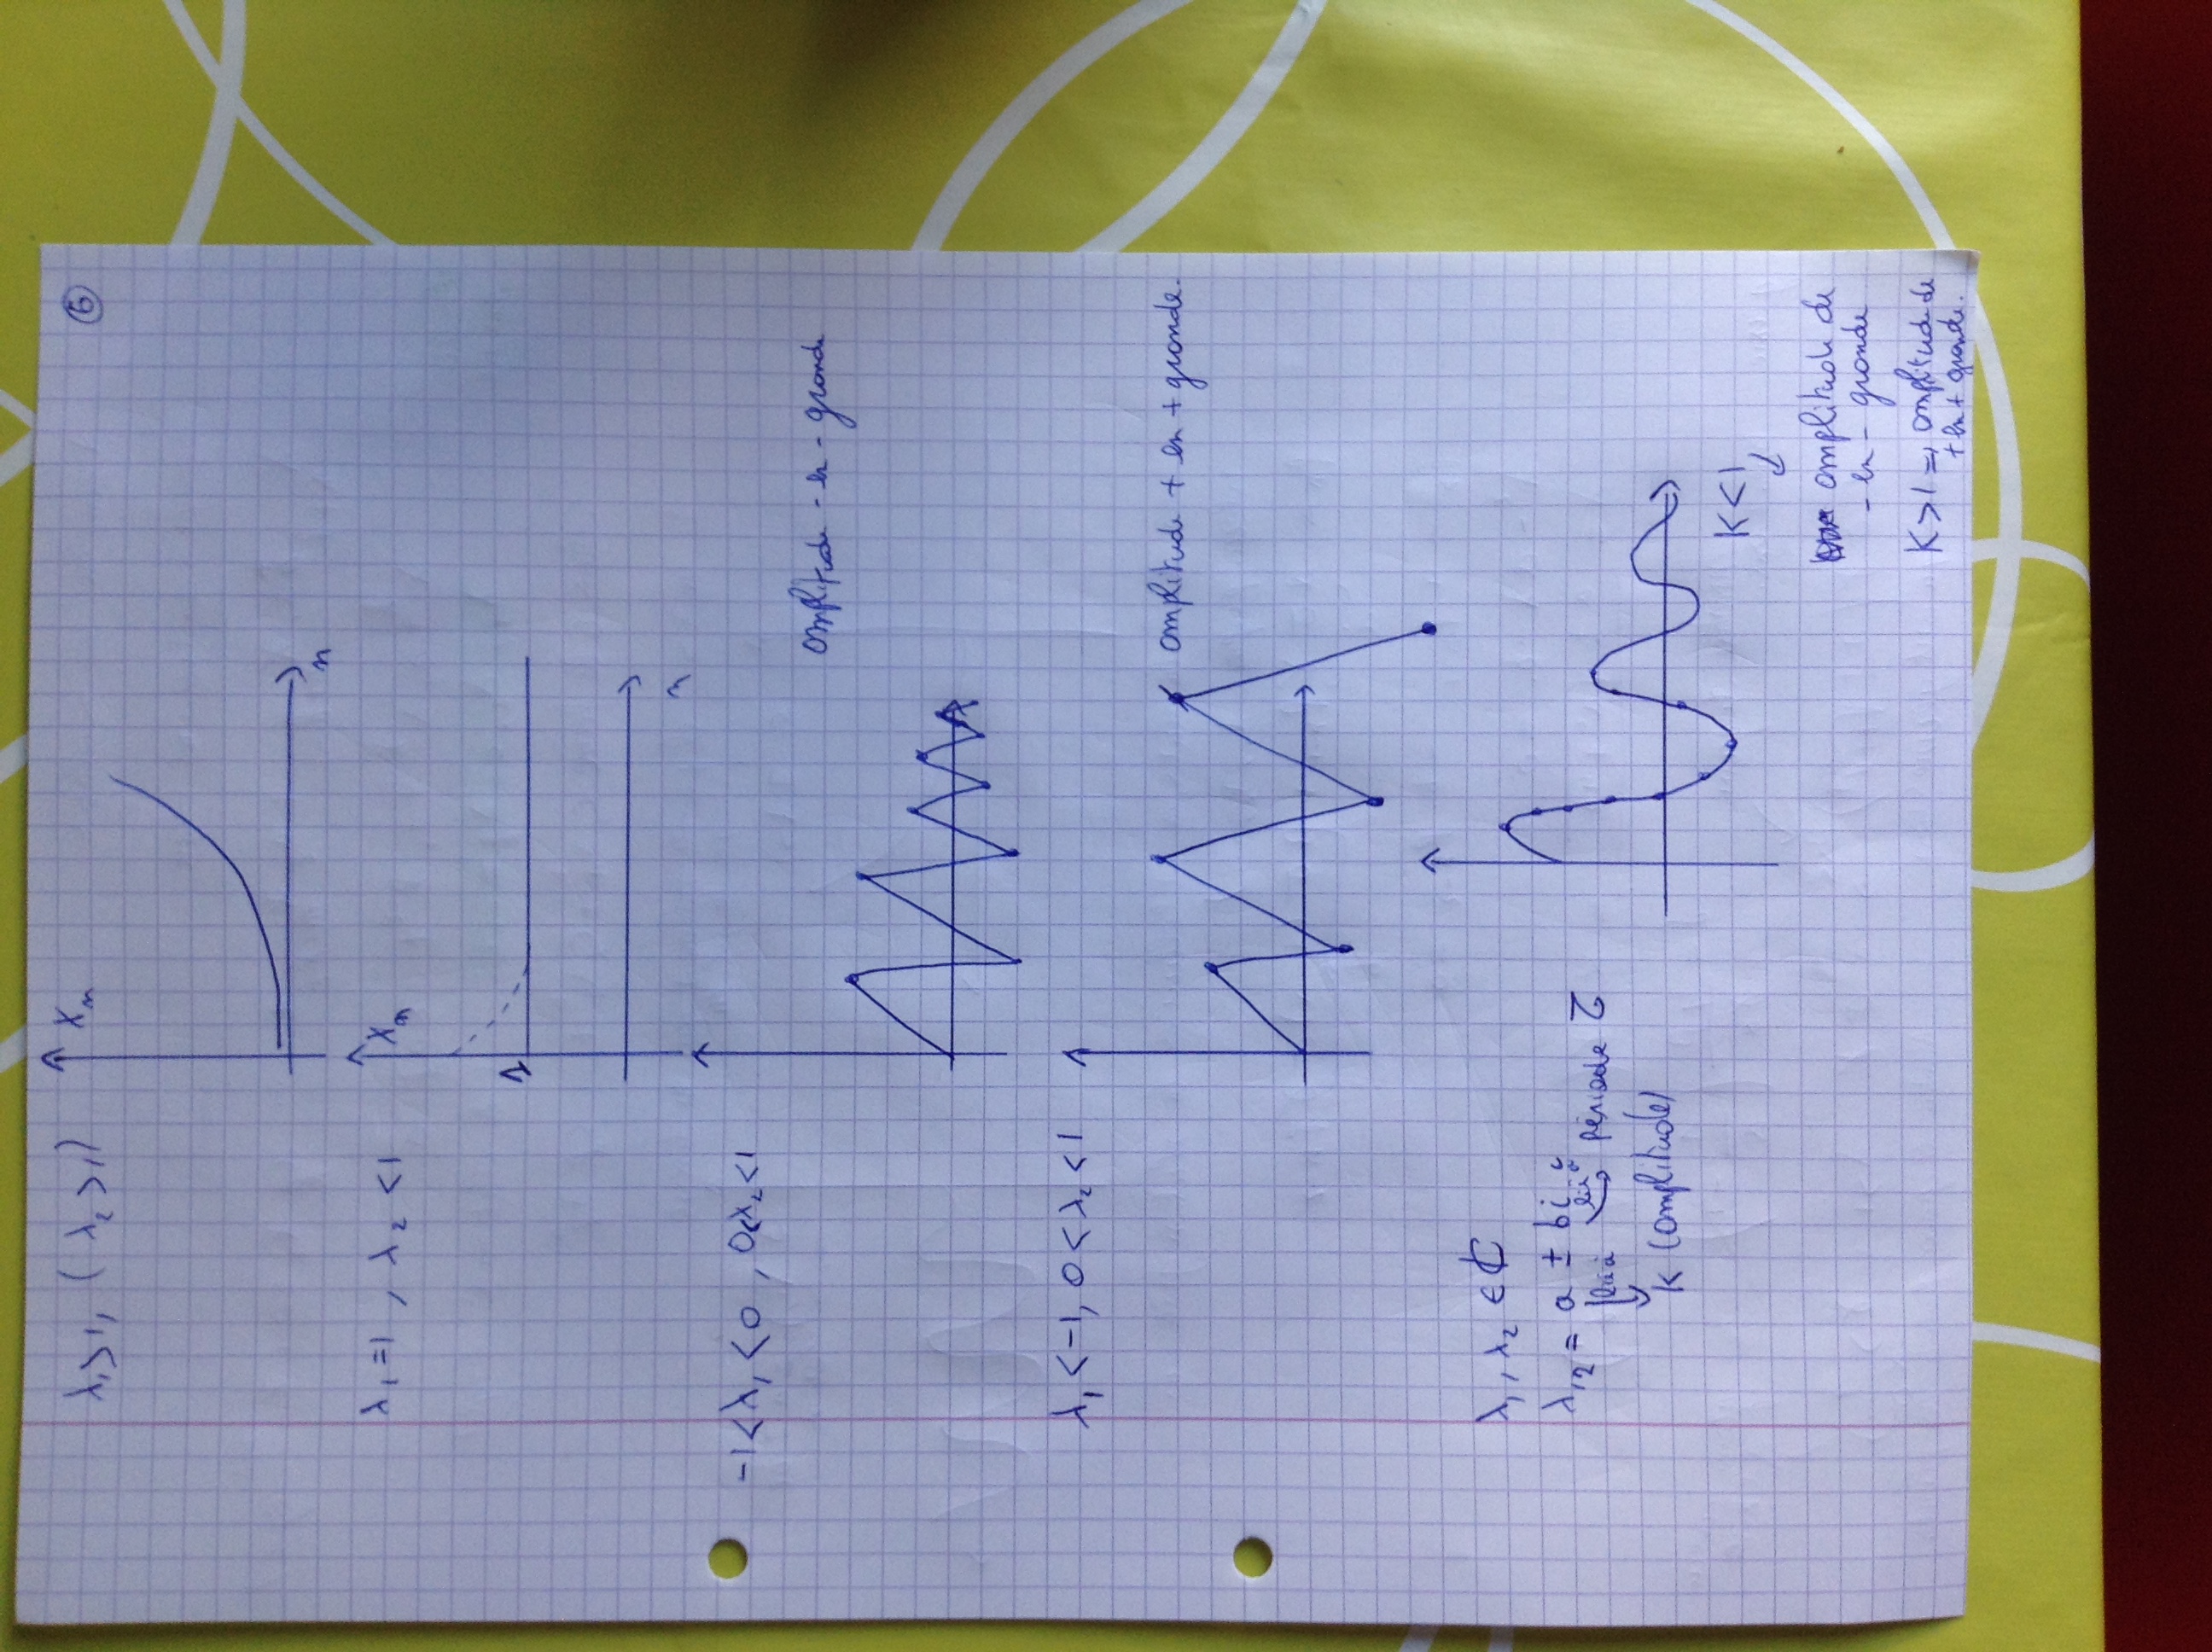 6
λ₁>1, (λ₂>1)
Xn
n
λ₁=1, λ₂<1
Xn
n
-1<λ₁<0, 0<λ₂<1
amplitude - en - grande
λ₁<-1, 0<λ₂<1
amplitude + en + grande.
λ₁, λ₂ ∈ ℂ
λ₁₂ = a ± bi
lié à
lié à période τ
K (amplitude)
K<1
↓
amplitude de
- en - grande
K>1 => amplitude de
+ en + grande.